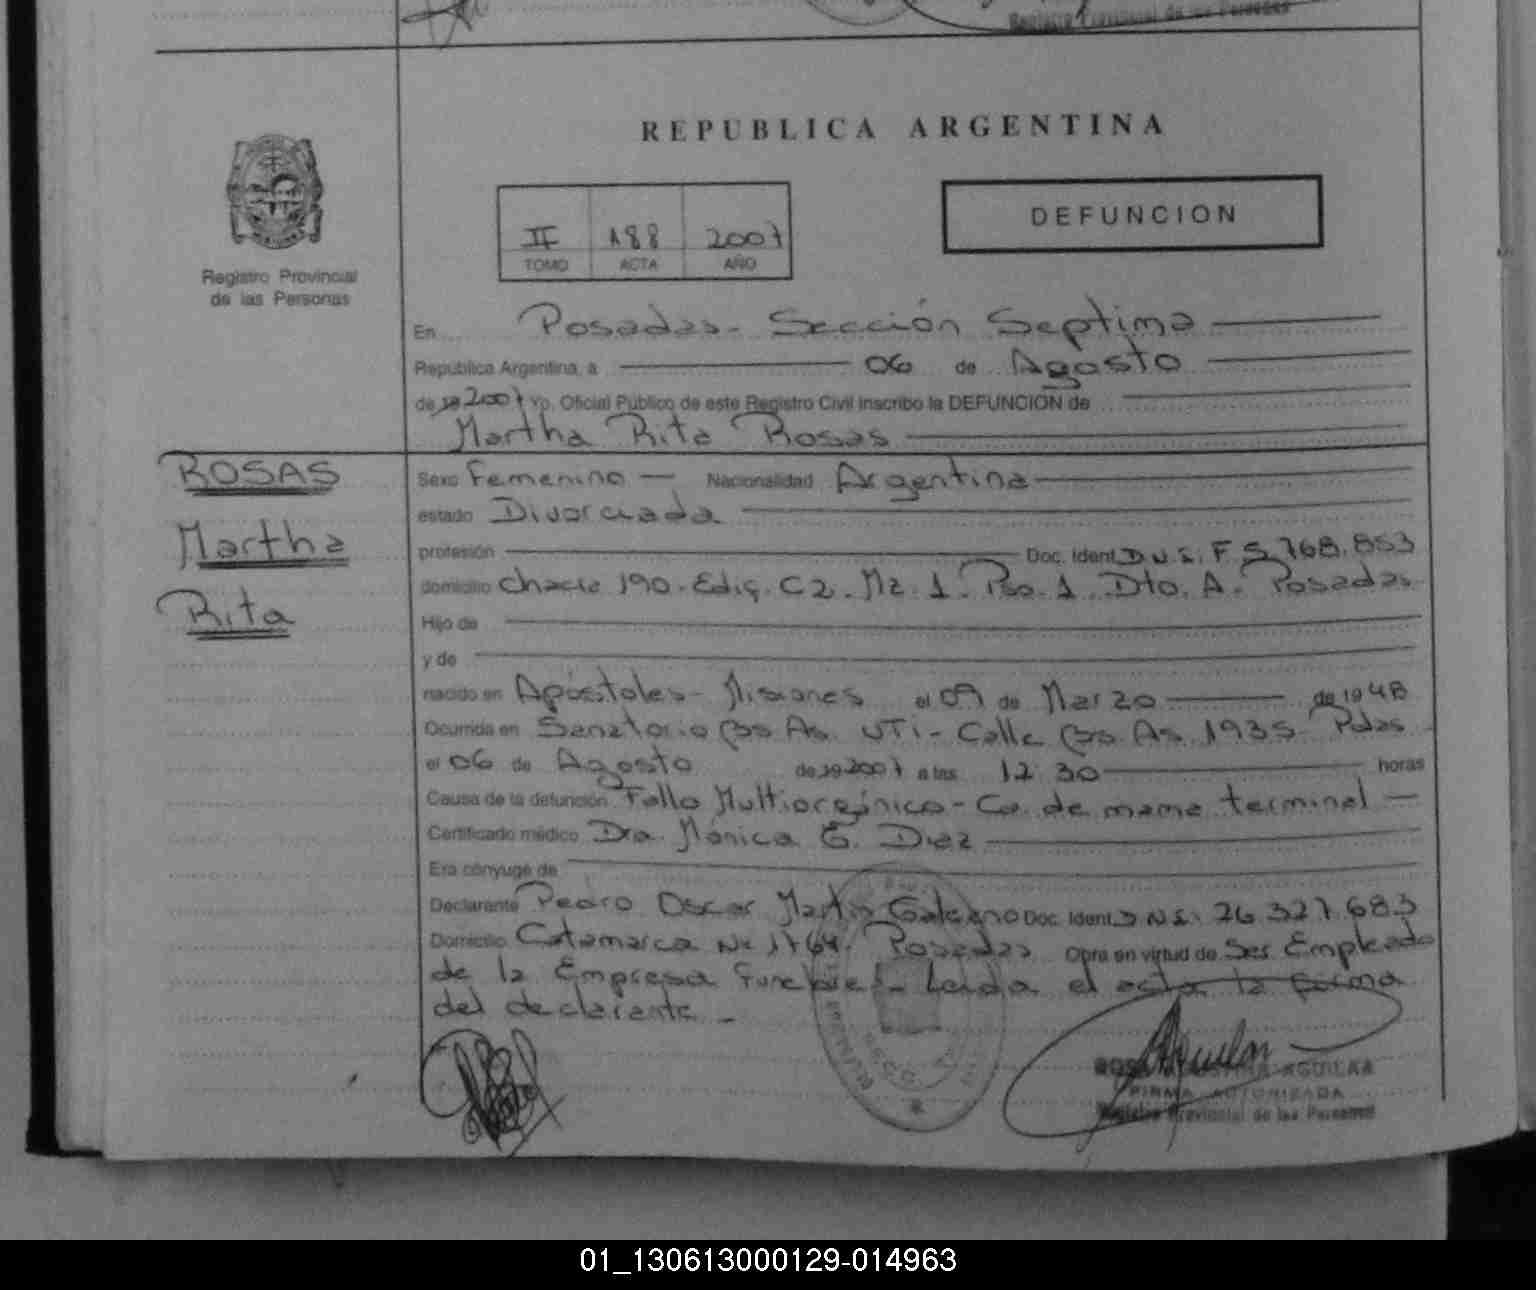 Registro Provincial de las Personas
REPUBLICA ARGENTINA
DEFUNCION
II 188 2007
TOMO ACTA AÑO
Registro Provincial
de las Personas
En Posadas - Sección Septima
Republica Argentina, a 06 de Agosto
de 19 2007 yo, Oficial Público de este Registro Civil inscribo la DEFUNCION de
Martha Rita Rosas
ROSAS
Martha
Rita
Sexo Femenino Nacionalidad Argentina
estado Divorciada
profesión Doc. Ident. D.N.I. F 5.768.853
domicilio Chacra 190. Edif. C2. Mz. 1. Pso. 1. Dto. A. Posadas
Hijo de
y de
nacido en Apóstoles - Misiones el 09 de Marzo de 1948
Ocurrida en Sanatorio Bs As. UTI - Calle Bs As 1935 Pdas
el 06 de Agosto de 19 2007 a las 12 30 horas
Causa de la defunción Fallo Multiorgánico - Ca. de mama terminal
Certificado médico Dra. Mónica G. Diaz
Era cónyuge de
Declarante Pedro Oscar Martin Galeano Doc. Ident. D.N.I. 26.327.683
Domicilio Catamarca Nº 1764. Posadas Obra en virtud de Ser Empleado
de la Empresa Funebre - Leida el acta la firma
del declarante -
ROSA AGUILAR
FIRMA AUTORIZADA
Registro Provincial de las Personas
01_130613000129-014963